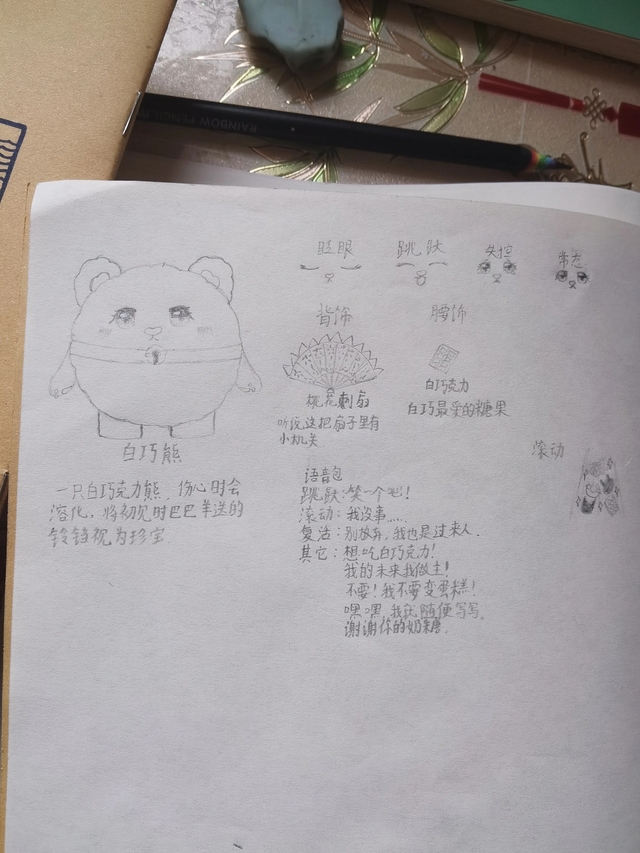 RAINBOW PENCIL
眨眼 跳肤 失控 常态
背饰 腰饰
白巧克力
桃花刺扇
白巧最爱的糖果
听说这把扇子里有
小机关
白巧熊
滚动
一只白巧克力熊,伤心时会
溶化,将初见时巴巴羊送的
铃铛视为珍宝.
语音包
跳肤:笑一个吧!
滚动:我没事……
复活:别放弃,我也是过来人.
其它:想吃白巧克力!
我的未来我做主!
不要!我不要变蛋糕!
嘿嘿,我就随便写写.
谢谢你的奶糖.